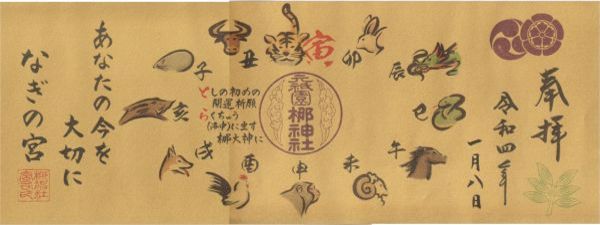 奉拝
令和四年
一月八日
子
丑
寅
卯
辰
巳
午
未
申
酉
戌
亥
元祇園
梛神社
としの初めの
開運祈願
らくちゅう
(洛中)に坐す
梛大神に
あなたの今を
大切に
なぎの宮